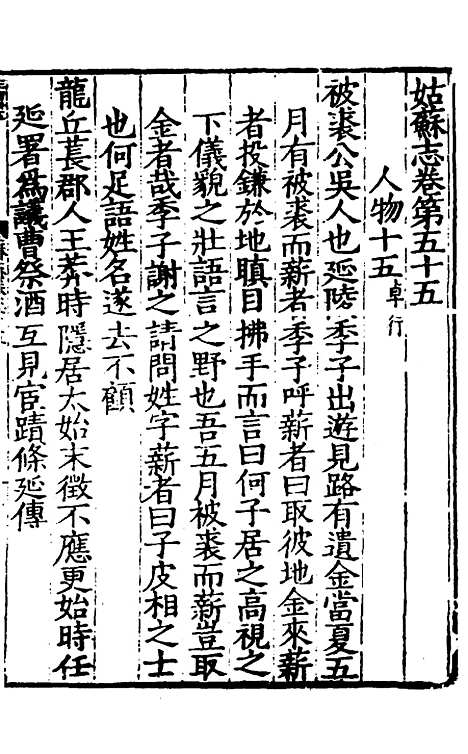 姑蘇志卷第五十五
人物十五卓行
被裘公吳人也延陵季子出遊見路有遺金當夏五
月有被裘而薪者季子呼薪者曰取彼地金來薪
者投鎌於地瞋目拂手而言曰何子居之高視之
下儀貌之壯語言之野也吾五月被裘而薪豈取
金者哉季子謝之請問姓字薪者曰子皮相之士
也何足語姓名遂去不顧
龍丘萇郡人王莽時隱居太始末徵不應更始時任
延署爲議曹祭酒互見官蹟條延傳